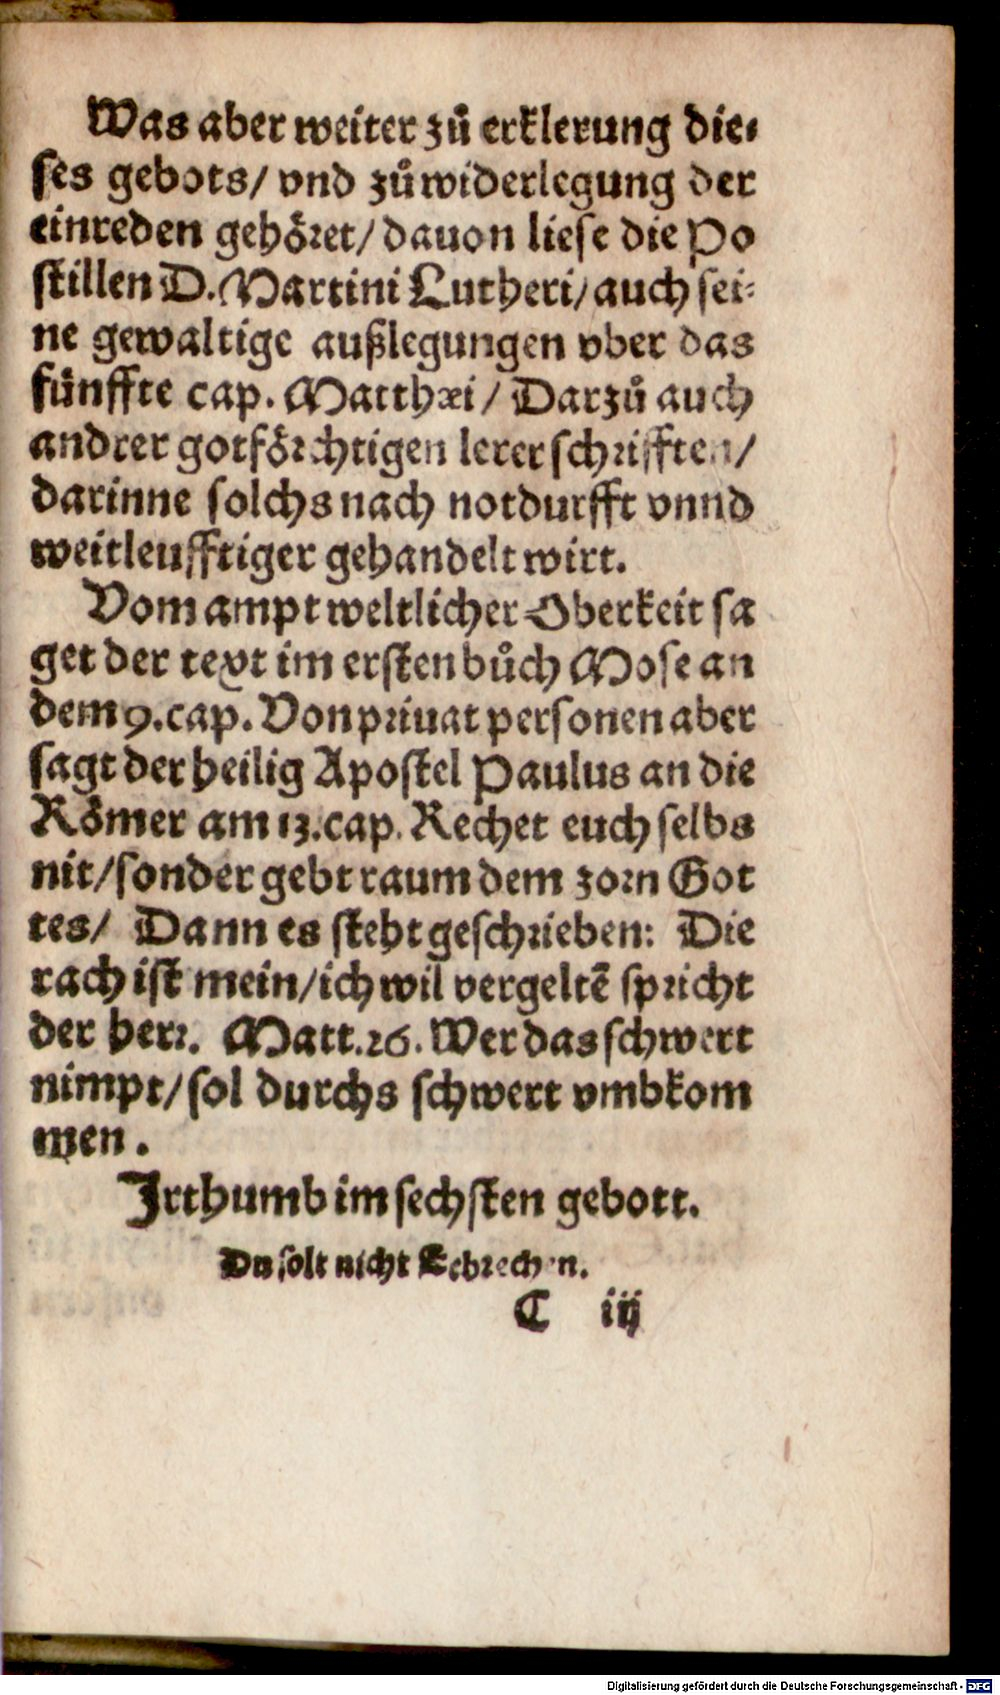 Was aber weiter zů erklerung die-
ses gebots/ vnd zů widerlegung der
einreden gehöret/ dauon liese die Po
stillen D. Martini Lutheri/ auch sei-
ne gewaltige außlegungen vber das
fünffte cap. Matthæi/ Darzů auch
andrer gotförchtigen lerer schrifften/
darinne solchs nach notdurfft vnnd
weitleufftiger gehandelt wirt.
Vom ampt weltlicher Oberkeit sa
get der text im ersten bůch Mose an
dem 9. cap. Von priuat personen aber
sagt der heilig Apostel Paulus an die
Römer am 13. cap. Rechet euch selbs
nit/ sonder gebt raum dem zorn Got
tes/ Dann es steht geschrieben: Die
rach ist mein/ ich wil vergeltē spricht
der herr. Matt. 26. Wer das schwert
nimpt/ sol durchs schwert vmbkom
men.
Irthumb im sechsten gebott.
Du solt nicht Eebrechen.
C iij
Digitalisierung gefördert durch die Deutsche Forschungsgemeinschaft - DFG